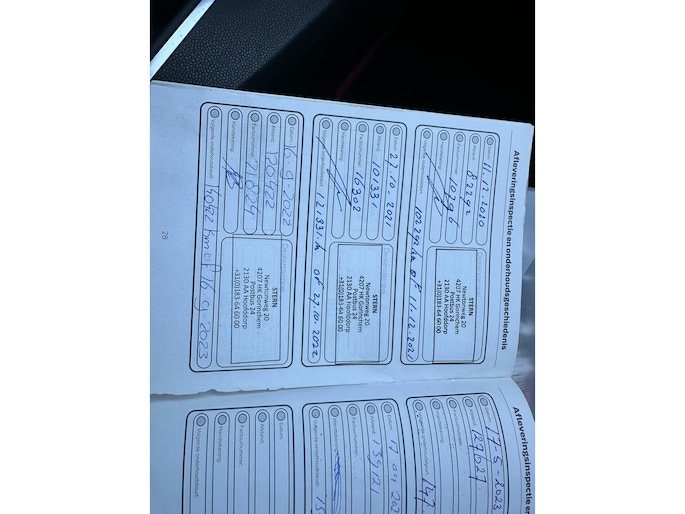 Afleveringsinspectie en onderhoudsgeschiedenis
Datum: 11.12.2020
Afstand: 82292
Factuurnummer: 10796
Handtekening:
Volgende onderhoudsbeurt: 102292 km of 11.12.2021
Dealerstempel
STERN
Newtonweg 20
4207 HK Gorinchem
Postbus 24
2130 AA Hoofddorp
+31(0)183-64 60 00
Datum: 27.10.2021
Afstand: 101331
Factuurnummer: 16302
Handtekening:
Volgende onderhoudsbeurt: 121331 km of 27.10.2022
Dealerstempel
STERN
Newtonweg 20
4207 HK Gorinchem
Postbus 24
2130 AA Hoofddorp
+31(0)183-64 60 00
Datum: 16.9.2022
Afstand: 120422
Factuurnummer: 21824
Handtekening:
Volgende onderhoudsbeurt: km of 16 9 2023
Dealerstempel
STERN
Newtonweg 20
4207 HK Gorinchem
Postbus 24
2130 AA Hoofddorp
+31(0)183-64 60 00
28
Afleveringsinspectie en
Datum: 17-5-2023
Afstand:
Factuurnummer:
Handtekening:
Volgende onderhoudsbeurt: 147
Datum: 17 04 202
Afstand: 139121
Factuurnummer:
Handtekening:
Volgende onderhoudsbeurt: 15
Datum:
Afstand:
Factuurnummer:
Handtekening:
Volgende onderhoudsbeurt: